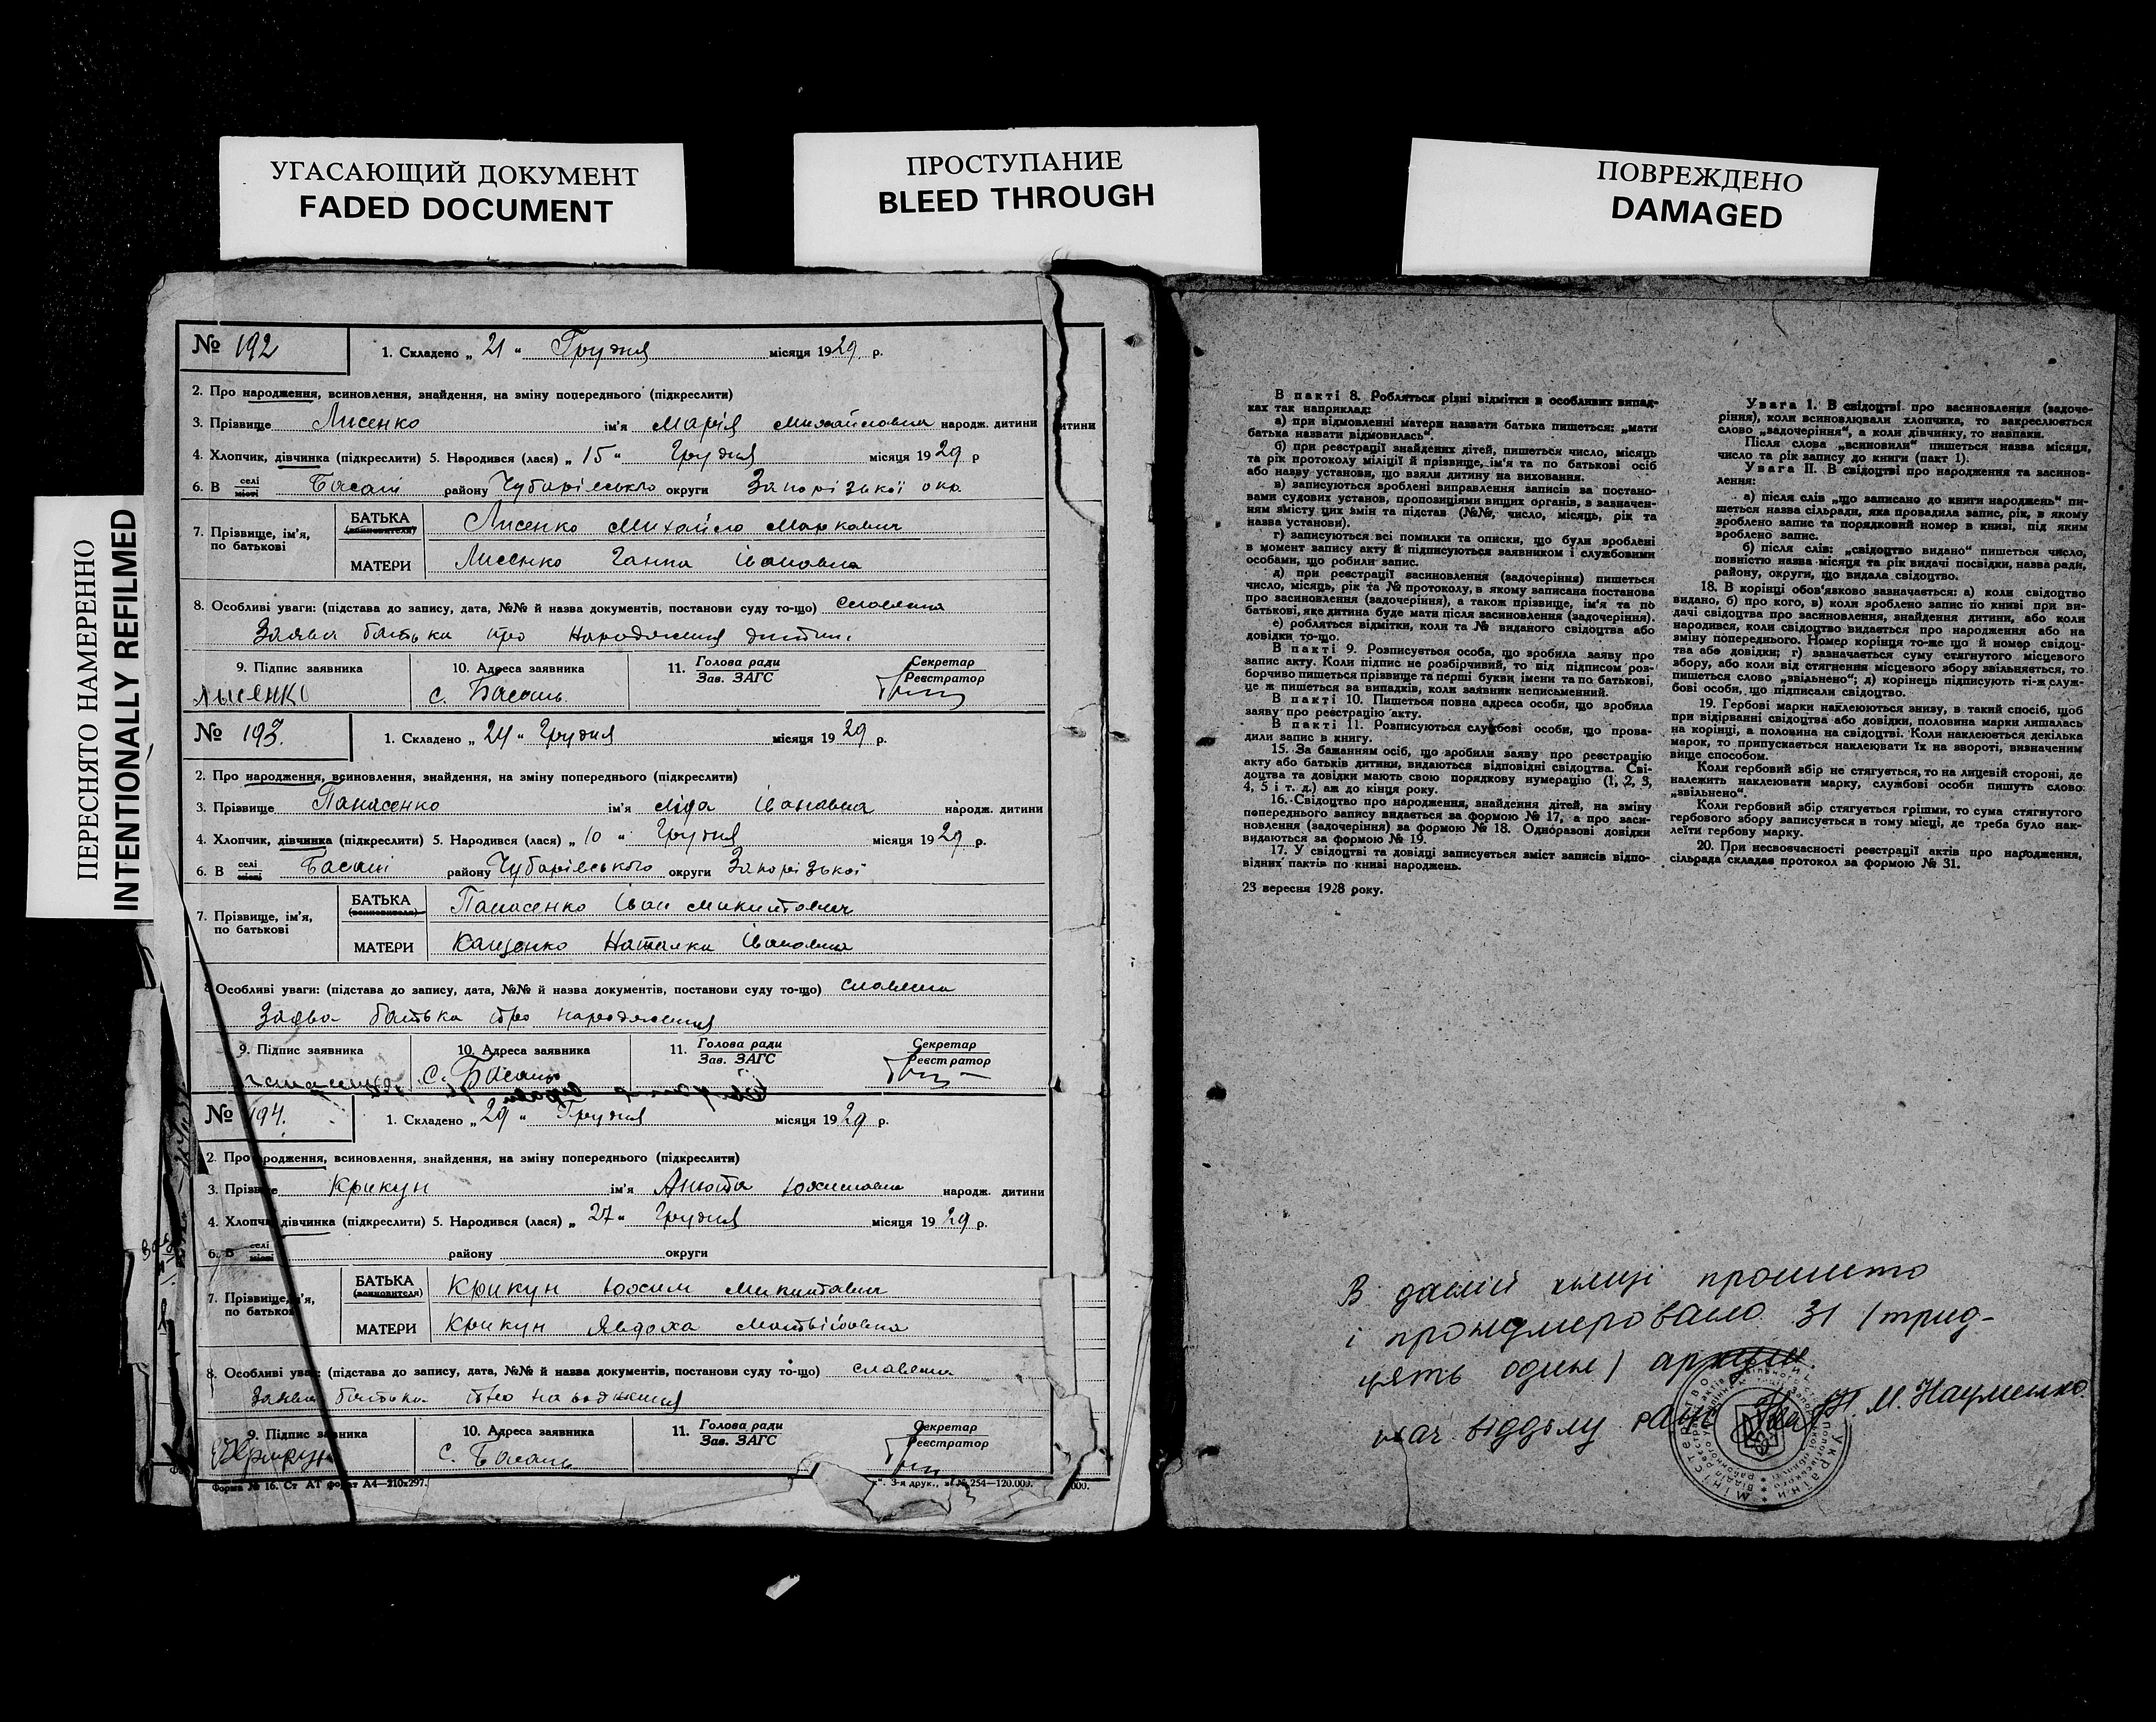 УГАСАЮЩИЙ ДОКУМЕНТ
FADED DOCUMENT
ПРОСТУПАНИЕ
BLEED THROUGH
ПОВРЕЖДЕНО
DAMAGED
ПЕРЕСНЯТО НАМЕРЕННО
INTENTIONALLY REFILMED
№ 192
1. Складено „ 21 " Грудня місяця 1929 р.
2. Про народження, всиновлення, знайдення, на зміну попереднього (підкреслити)
3. Прізвище Лисенко ім'я Марія Михайловна народж. дитини
4. Хлопчик, дівчинка (підкреслити) 5. Народився (лася) „ 15 " Грудня місяця 1929 р
6. В селі місті Басані району Чубарівського округи Запорізької окр.
7. Прізвище, ім'я, по батькові
БАТЬКА (всиновителя) Лисенко Михайло Маркович
МАТЕРИ Лисенко Ганна Івановна
8. Особливі уваги: (підстава до запису, дата, №№ й назва документів, постанови суду то-що) славяна
Заява батька про народження дитини
9. Підпис заявника
10. Адреса заявника
11. Голова ради Зав. ЗАГС
Секретар Реєстратор
Лысенко
с. Басань
№ 193.
1. Складено „ 24 " Грудня місяця 1929 р.
2. Про народження, всиновлення, знайдення, на зміну попереднього (підкреслити)
3. Прізвище Панасенко ім'я Ліда Івановна народж. дитини
4. Хлопчик, дівчинка (підкреслити) 5. Народився (лася) „ 10 " Грудня місяця 1929 р.
6. В селі місті Басані району Чубарівського округи Запорізької
7. Прізвище, ім'я, по батькові
БАТЬКА (всиновителя) Панасенко Іван Микитович
МАТЕРИ Кащенко Наталка Івановна
8 Особливі уваги: (підстава до запису, дата, №№ й назва документів, постанови суду то-що) славяна
Заява батька про народження
9. Підпис заявника
10. Адреса заявника
11. Голова ради Зав. ЗАГС
Секретар Реєстратор
с. Басань
№ 194.
1. Складено „ 29 " Грудня місяця 1929 р.
2. Про народження, всиновлення, знайдення, на зміну попереднього (підкреслити)
3. Прізвище Крикун ім'я Анюта Юхимовна народж. дитини
4. Хлопчик дівчинка (підкреслити) 5. Народився (лася) „ 27 " Грудня місяця 1929 р.
6. В селі місті району округи
7. Прізвище, ім'я, по батькові
БАТЬКА (всиновителя) Крикун Юхим Микитович
МАТЕРИ Крикун Явдоха Матвіївна
8. Особливі уваги: (підстава до запису, дата, №№ й назва документів, постанови суду то-що) славяна
Заява батька про народження
9. Підпис заявника
10. Адреса заявника
11. Голова ради Зав. ЗАГС
Секретар Реєстратор
Крикун
с. Басань
Форма № 16. Ст АТ формат А4—210×297.
3-я друк., № 254—120.000.
В пакті 8. Робляться різні відмітки в особливих випад-
ках так наприклад:
а) при відмовленні матери назвати батька пишеться: „мати
батька назвати відмовилась".
б) при реєстрації знайдених дітей, пишеться число, місяць
та рік протоколу міліції й прізвище, ім'я та по батькові осіб
або назву установи, що взяли дитину на виховання.
в) записуються зроблені виправлення записів за постано-
вами судових установ, пропозиціями вищих органів, в зазначен-
ням змісту цих змін та підстав (№№, число, місяць, рік та
назва установи).
г) записуються всі помилки та описки, що були зроблені
в момент запису акту й підписуються заявником і службовими
особами, що робили запис.
д) при реєстрації всиновлення (задочеріння) пишеться
число, місяць, рік та № протоколу, в якому записана постанова
про всиновлення (задочеріння), а також прізвище, ім'я та по
батькові, яке дитина буде мати після всиновлення (задочеріння).
е) робляться відмітки, коли та № виданого свідоцтва або
довідки то-що.
В пакті 9. Розписується особа, що зробила заяву про
запис акту. Коли підпис не розбірчивий, то під підписом роз-
бірчиво пишеться прізвище та перші букви імени та по батькові,
це ж пишеться за випадків, коли заявник неписьменний.
В пакті 10. Пишеться повна адреса особи, що зробила
заяву про реєстрацію акту.
В пакті 11. Розписуються службові особи, що прова-
дили запис в книгу.
15. За бажанням осіб, що зробили заяву про реєстрацію
акту або батьків дитини, видаються відповідні свідоцтва. Сві-
доцтва та довідки мають свою порядкову нумерацію (1, 2, 3,
4, 5 і т. д.) аж до кінця року.
16. Свідоцтво про народження, знайдення дітей, на зміну
попереднього запису видається за формою № 17, а про заси-
новлення (задочеріння) за формою № 18. Одноразові довідки
видаються за формою № 19.
17. У свідоцтві та довідці записується зміст записів відпо-
відних пактів по книзі народжень.
23 вересня 1928 року.
Увага I. В свідоцтві про всиновлення (задоче-
ріння), коли всиновлювали хлопчика, то закреслюється
слово „задочеріння", а коли дівчинку, то навпаки.
Після слова „всиновили" пишеться назва місяця,
число та рік запису до книги (пакт 1).
Увага II. В свідоцтві про народження та засинов-
лення:
а) після слів „що записано до книги народжень" пи-
шеться назва сільради, яка провадила запис, рік, в якому
зроблено запис та порядковий номер в книзі, під яким
вроблено запис.
б) після слів: „свідоцтво видано" пишеться число,
повністю назва місяця та рік видачі посвідки, назва ради,
району, округи, що видала свідоцтво.
18. В корінці обов'язково зазначається: а) коли свідоцтво
видано, б) про кого, в) коли зроблено запис по книзі при ви-
дачі свідоцтва про засиновлення, знайдення дитини, або коли
народився, коли свідоцтво видається про народження або на
зміну попереднього. Номер корінця то-же що й номер свідоц-
тва або довідки; г) зазначається суму стягнутого місцевого
збору, або коли від стягнення місцевого збору звільняється, то
пишеться слово „звільнено"; д) корінець підписують ті-ж служ-
бові особи, що підписали свідоцтво.
19. Гербові марки наклеюються знизу, в такий спосіб, щоб
при відірванні свідоцтва або довідки, половина марки лишалась
на корінці, а половина на свідоцтві. Коли наклеюється декілька
марок, то припускається наклеювати їх на звороті, визначеним
вище способом.
Коли гербовий збір не стягується, то на лицевій стороні, де
належить наклеювати марку, службові особи пишуть слово:
„звільнено".
Коли гербовий збір стягується грішми, то сума стягнутого
гербового збору записується в тому місці, де треба було нак-
леїти гербову марку.
20. При несвоєчасності реєстрації актів про народження,
сільрада складає протокол за формою № 31.
В даній книзі прошито
і пронумеровано 31 (трид-
цять один)
нач. відділу рацс Н. М. Науменко